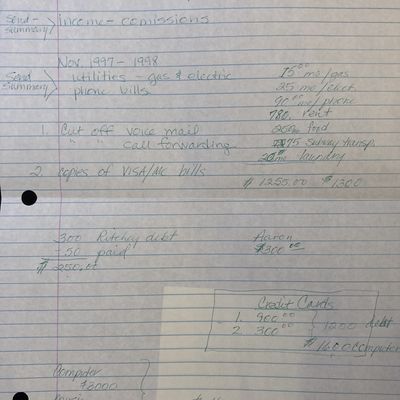 Send summary > income - comissions
Nov 1997 - 1998
Send Summary > utilities - gas & electric
phone bills
15.00 mo/gas
25 mo/elect
90.00 mo/phone
780. rent
200mo food
75 subway transp.
20 mo laundry
$1255.00 $1300
1. Cut off voice mail
" " call forwarding
2. copies of VISA/MC bills
300 Ritchey debt
-50 paid
$250.00
Aaron
$300.00
Credit Cards
1. 900.00
2. 300.00
1200 debt
$1600 computer
Computer
$3000